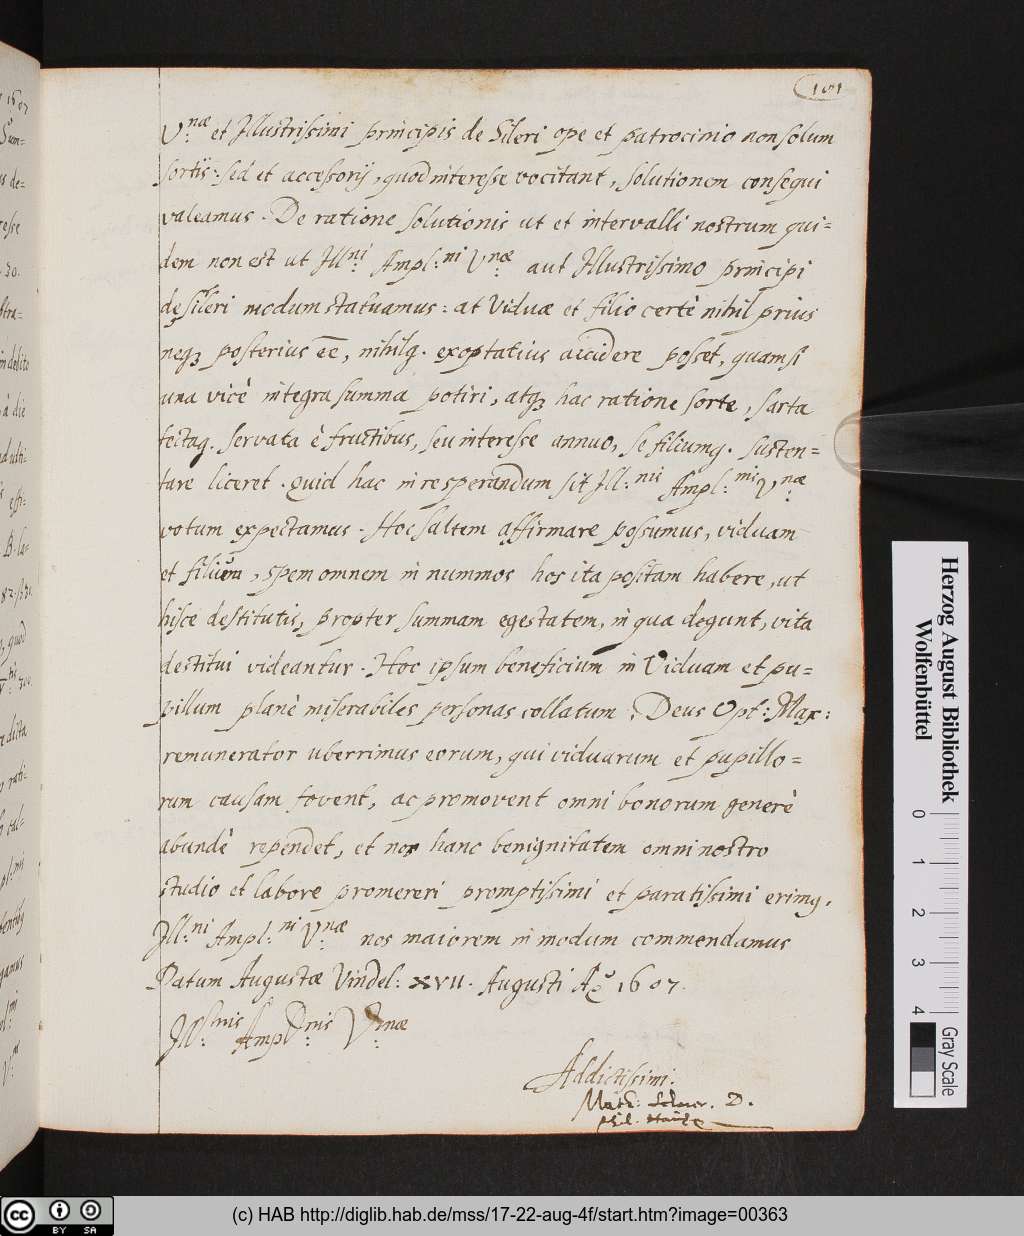 171
V:næ et Illustrissimi principis de Sileri ope et patrocinio non solum
sortis: sed et accessorij, quod interesse vocitant, solutionem consequi
valeamus. De ratione solutionis ut et intervalli nostrum qui=
dem non est ut Ill:ni Ampl:ni V:næ aut Illustrissimo principi
de Sileri modum statuamus: at Viduæ et filio certè nihil prius
neqꝫ posterius eē, nihilq. exoptatius accidere posset, quam si
una vice integra summa potiri, atqꝫ hac ratione sorte, sarta
tectaq. servata è fructibus, seu interesse annuo, se filiumq. susten=
tare liceret. Quid hac in re sperandum sit Ill:nis Ampl:mis V:næ
votum expectamus. Hoc saltem affirmare possumus, viduam
et filium, spem omnem in nummos hos ita positam habere, ut
hisce destitutis, propter summam egestatem, in qua degunt, vita
destitui videantur. Hoc ipsum beneficium in Viduam et pu=
pillum planè miserabiles personas collatum, Deus Opt: Max:
remunerator uberrimus eorum, qui viduarum et pupillo=
rum causam fovent, ac promovent omni bonorum genere
abundè rependet, et nos hanc benignitatem omni nostro
studio et labore promereri promptissimi et paratissimi erimq.
Ill:ni Ampl:ni V:næ nos maiorem in modum commendamus
Datum Augustæ Vindel: XVII. Augusti Ao 1607.
Ill:mis Ampl:mis V:næ
Addictissimi.
D.
1607
Herzog August Bibliothek
Wolfenbüttel
0 1 2 3 4
Gray Scale
CC BY SA
(c) HAB http://diglib.hab.de/mss/17-22-aug-4f/start.htm?image=00363